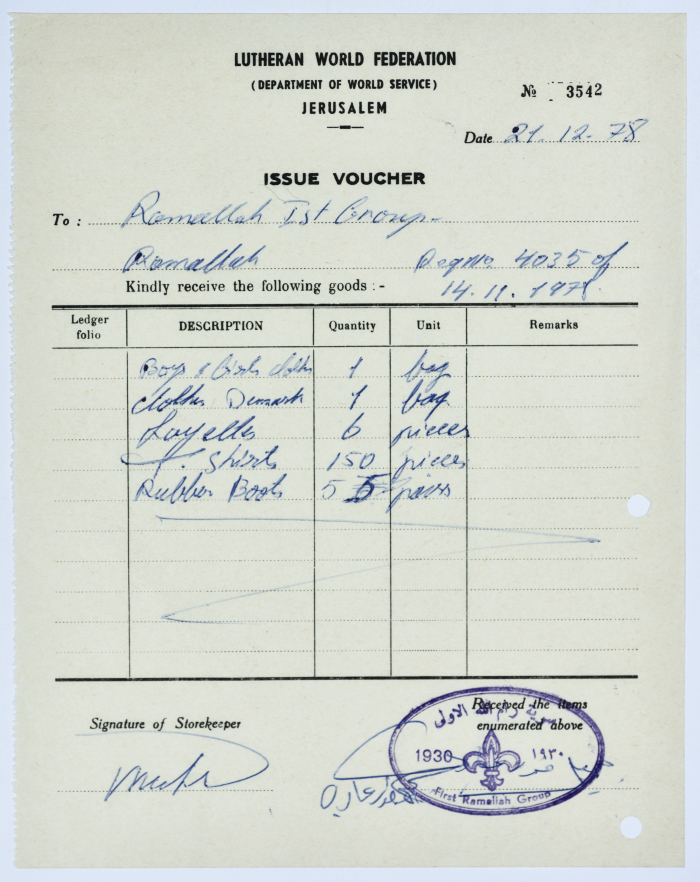 LUTHERAN WORLD FEDERATION
(DEPARTMENT OF WORLD SERVICE)
JERUSALEM
№ 3542
Date 21.12.78
ISSUE VOUCHER
To : Ramallah Ist Group-
Ramallah Req No. 4035 of
Kindly receive the following goods :- 14.11.1978.
Ledger folio DESCRIPTION Quantity Unit Remarks
Boys & Girls clothes 1 bag
clothes Denmark 1 bag
Layettes 6 pieces
T. Shirts 150 pieces
Rubber Boots 5 pairs
Received the items
Signature of Storekeeper enumerated above
سرية رام الله الاولى
1930 ١٩٣٠
First Ramallah Group